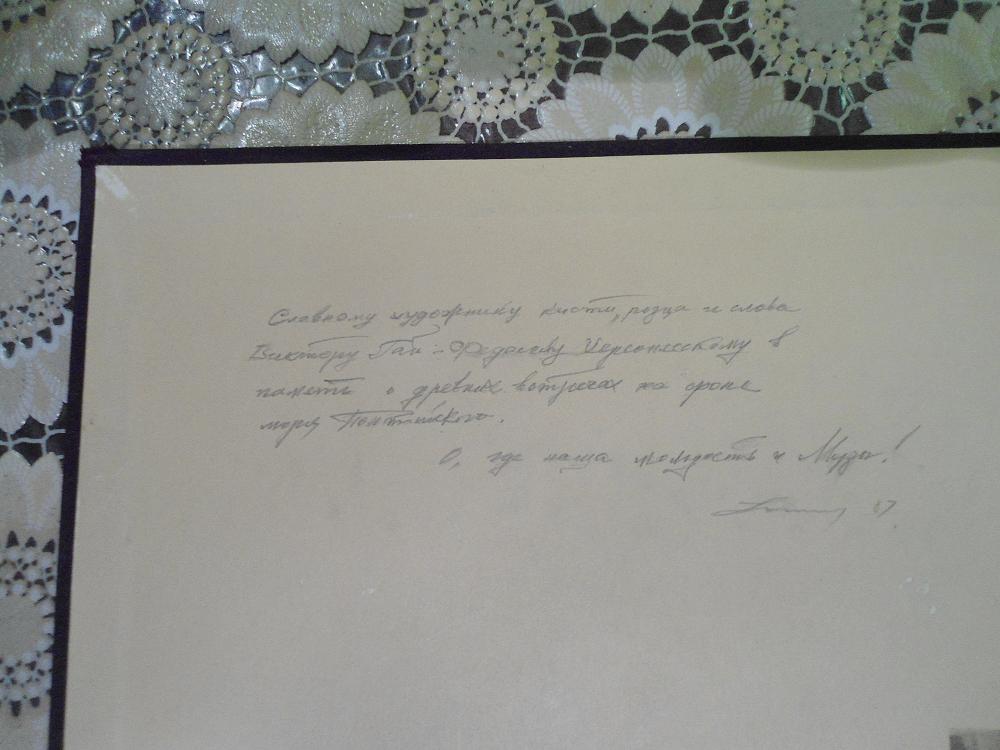 Славному художнику кисти, резца и слова
Виктору Гай-Федосееву Херсонесскому в
память о древних встречах на фоне
моря Понтийского.
О, где наша молодость и Музы!
87